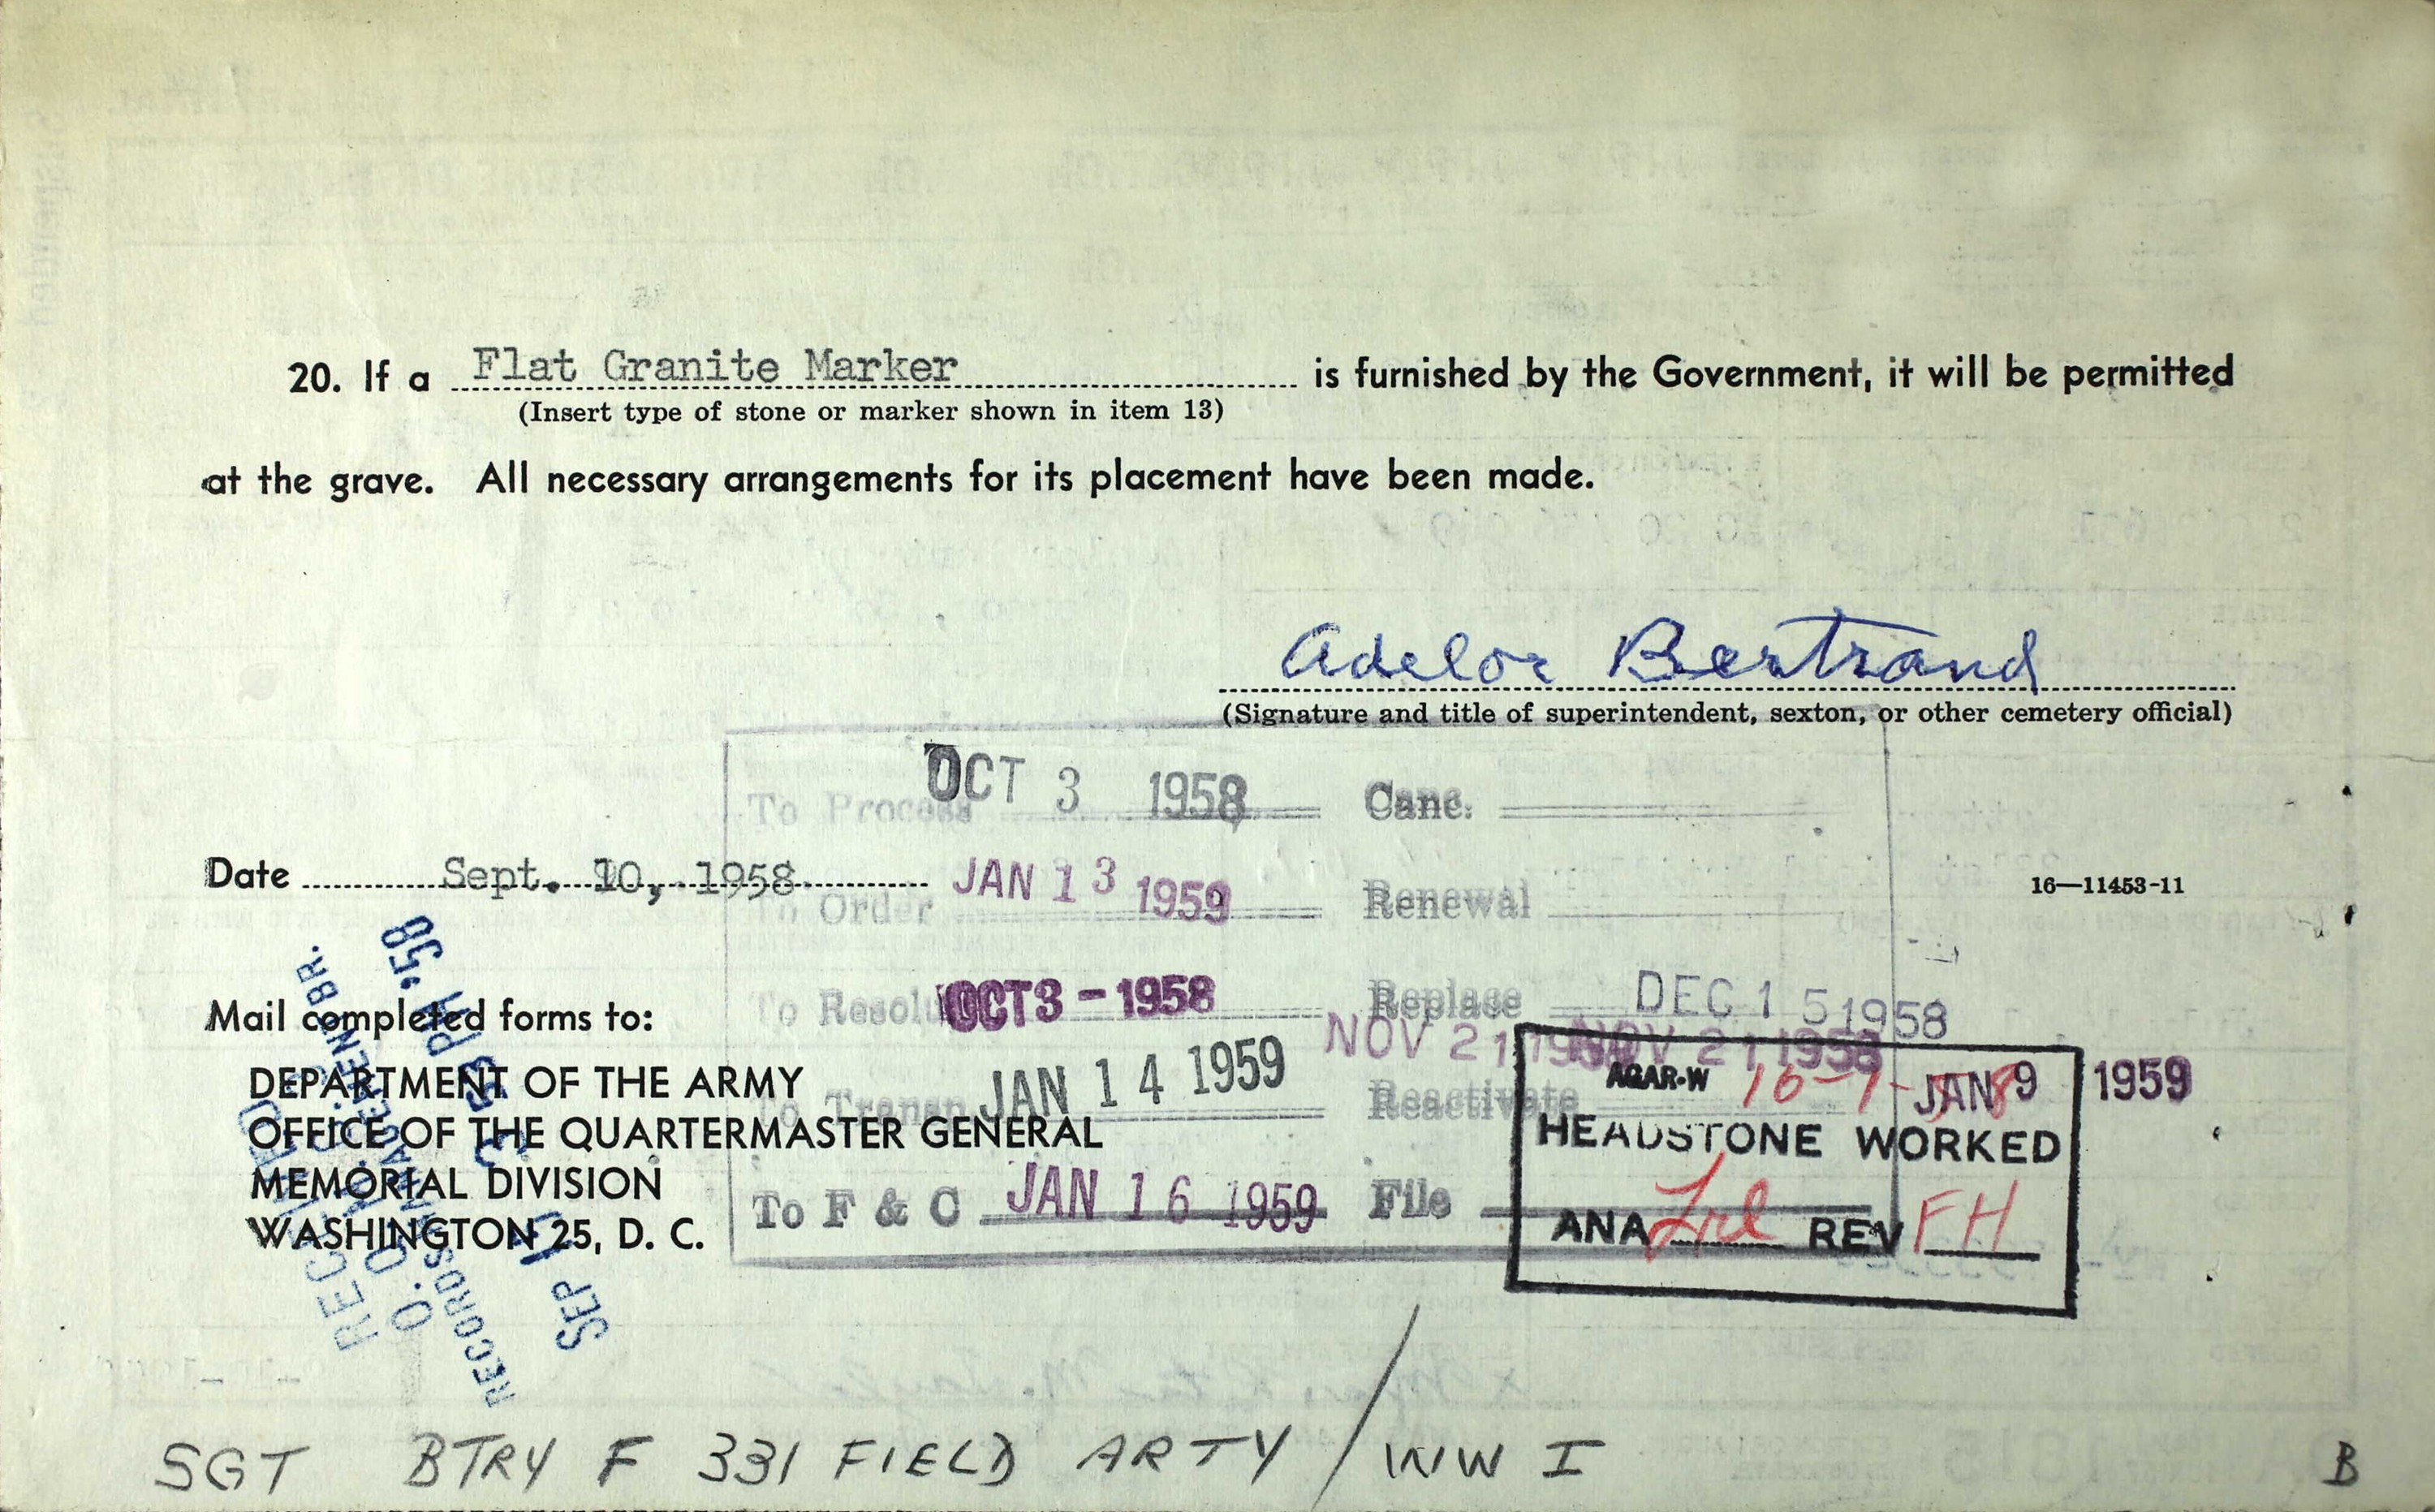 20. If a Flat Granite Marker is furnished by the Government, it will be permitted
(Insert type of stone or marker shown in item 13)
at the grave. All necessary arrangements for its placement have been made.
Adelor Bertrand
(Signature and title of superintendent, sexton, or other cemetery official)
To Process OCT 3 1958 Canc.
Date Sept. 10, 1958
16—11453-11
To Order JAN 13 1959 Renewal
To Resolu OCT 3 - 1958 Replace DEC 15 1958
NOV 21 1958 NOV 21 1958
Mail completed forms to:
DEPARTMENT OF THE ARMY
OFFICE OF THE QUARTERMASTER GENERAL
MEMORIAL DIVISION
WASHINGTON 25, D. C.
To Transp JAN 14 1959 Reactivate
To F & C JAN 16 1959 File
AGAR-W JAN 9 1959
HEADSTONE WORKED
ANA REV FH
O.Q.M.G.
SEP PM '58
SGT BTRY F 331 FIELD ARTY / WW I
B